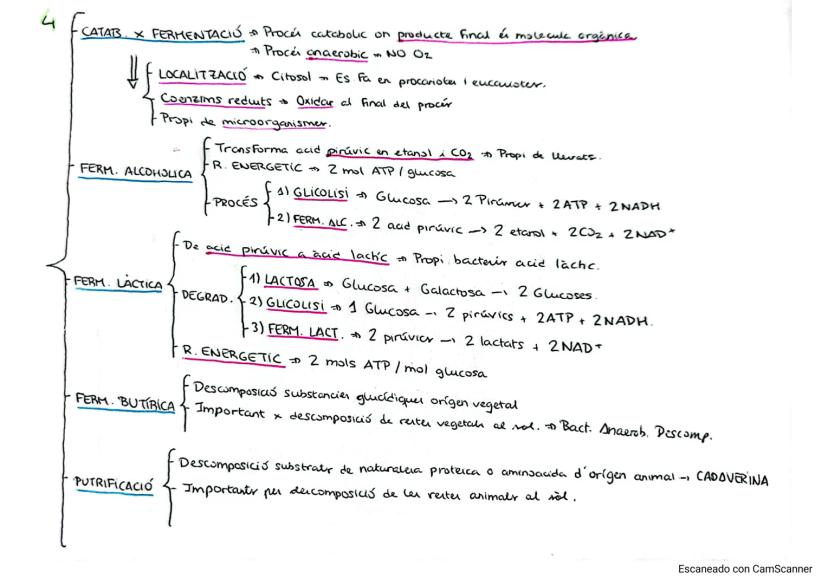 4
CATAB. x FERMENTACIÓ ⇒ Procés catabolic on producte final és molecula orgànica
⇒ Procés anaerobic ⇒ NO O2
LOCALITZACIÓ ⇒ Citosol ⇒ Es fa en procariotes i eucariotes.
Coenzims reduits ⇒ Oxidar al final del procés
Propi de microorganismes.
FERM. ALCOHOLICA
Transforma acid pirúvic en etanol i CO2 ⇒ Propi de llevats.
R. ENERGETIC ⇒ 2 mol ATP / glucosa
PROCÉS
1) GLICOLISI ⇒ Glucosa → 2 Pirúvics + 2ATP + 2NADH
2) FERM. ALC. ⇒ 2 acid pirúvic → 2 etanol + 2CO2 + 2NAD+
FERM. LÀCTICA
De acid pirúvic a àcid làctic ⇒ Propi bacteris acid làctic.
DEGRAD.
1) LACTOSA ⇒ Glucosa + Galactosa → 2 Glucoses.
2) GLICOLISI ⇒ 1 Glucosa → 2 pirúvics + 2ATP + 2NADH.
3) FERM. LACT. ⇒ 2 pirúvics → 2 lactats + 2NAD+
R. ENERGETIC ⇒ 2 mols ATP / mol glucosa
FERM. BUTÍRICA
Descomposició substancies glucídiques orígen vegetal
Important x descomposició de restes vegetals al sol. ⇒ Bact. Anaerob. Descomp.
PUTRIFICACIÓ
Descomposició substrats de naturalesa proteica o aminoacida d'orígen animal → CADAVERINA
Importants per descomposició de les restes animals al sòl.
Escaneado con CamScanner